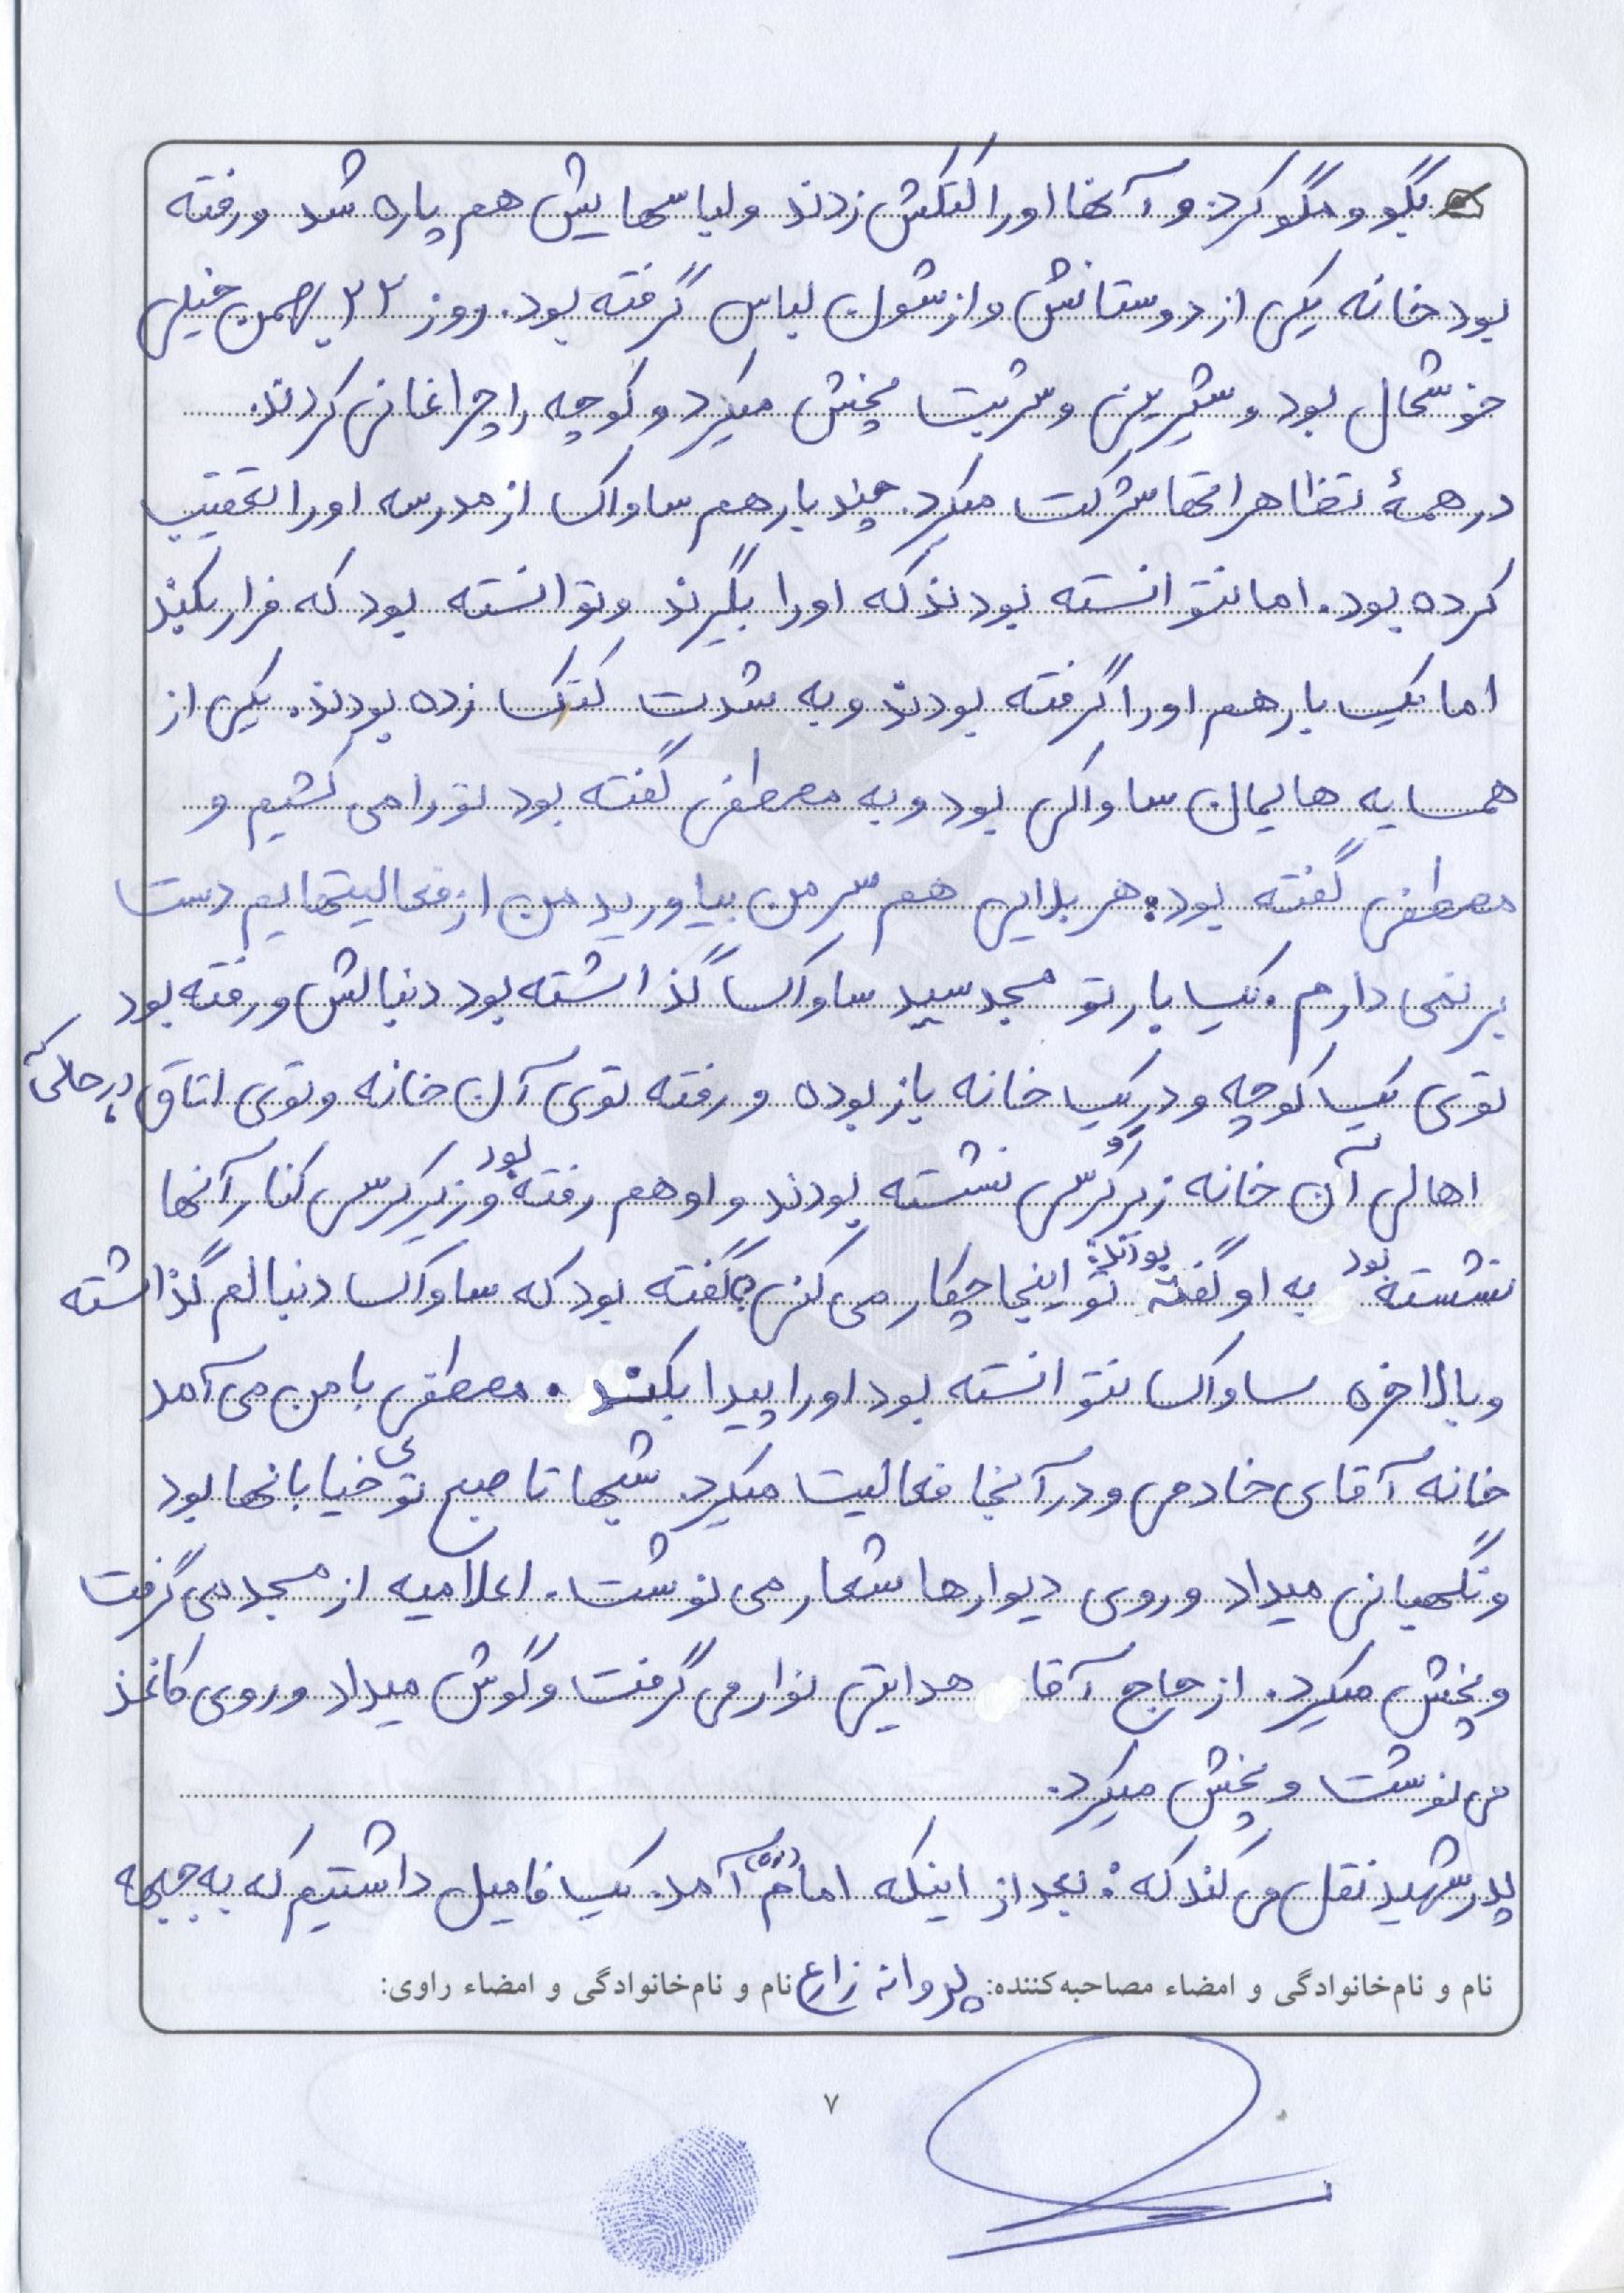 بگو و مگو کرد. و آنها او را کتکش زدند و لباسهایش هم پاره شد و رفته
بود خانه یکی از دوستانش و ازشون لباس گرفته بود. روز ۲۲ بهمن خیلی
خوشحال بود و شیرینی و شربت پخش میکرد و کوچه را چراغانی کردند.
در همهٔ تظاهراتها شرکت میکرد. چند بار هم ساواک از مدرسه او را تعقیب
کرده بود. اما نتوانسته بودند که او را بگیرند و توانسته بود که فرار بکند
اما یک بار هم او را گرفته بودند و به شدت کتک زده بودند. یکی از
همسایه هایمان ساواکی بود و به مصطفی گفته بود تو را می کشیم و
مصطفی گفته بود: هر بلایی هم سر من بیاورید من از فعالیتهایم دست
بر نمی دارم. یک بار تو مسجد سید ساواک گذاشته بود دنبالش و رفته بود
توی یک کوچه و در یک خانه باز بوده و رفته توی آن خانه و توی اتاق در حالی که
اهالی آن خانه زیر کُرسی نشسته بودند و او هم رفته بود و زیر کرسی کنار آنها
نشسته بود به او گفته بودند: تو اینجا چکار می کنی؟ گفته بود که ساواک دنبالم گذاشته
و بالاخره ساواک نتوانسته بود او را پیدا بکند. مصطفی با من می آمد
خانه آقای خادمی و در آنجا فعالیت میکرد. شبها تا صبح توی خیابانها بود
و نگهبانی میداد و روی دیوارها شعار می نوشت. اعلامیه از مسجد می گرفت
و پخش میکرد. از حاج آقا هدایتی نوار می گرفت و گوش میداد و روی کاغذ
می نوشت و پخش میکرد.
پدر شهید نقل می کند که: بعد از اینکه امام (ره) آمد. یک فامیل داشتیم که به جبهه
نام و نام‌خانوادگی و امضاء مصاحبه‌کننده: پروانه زارع نام و نام‌خانوادگی و امضاء راوی:
۷